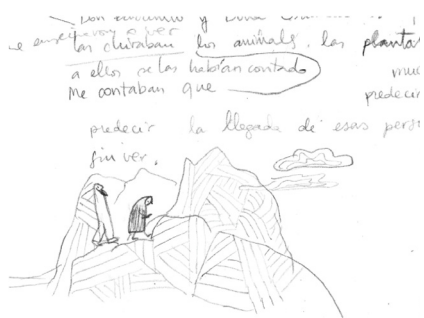 Don y Doña
a ver
las los animals. las planta
a ellos se las habían contado
Me contaban que predecir
predecir la llegada de esas pers
sin ver.